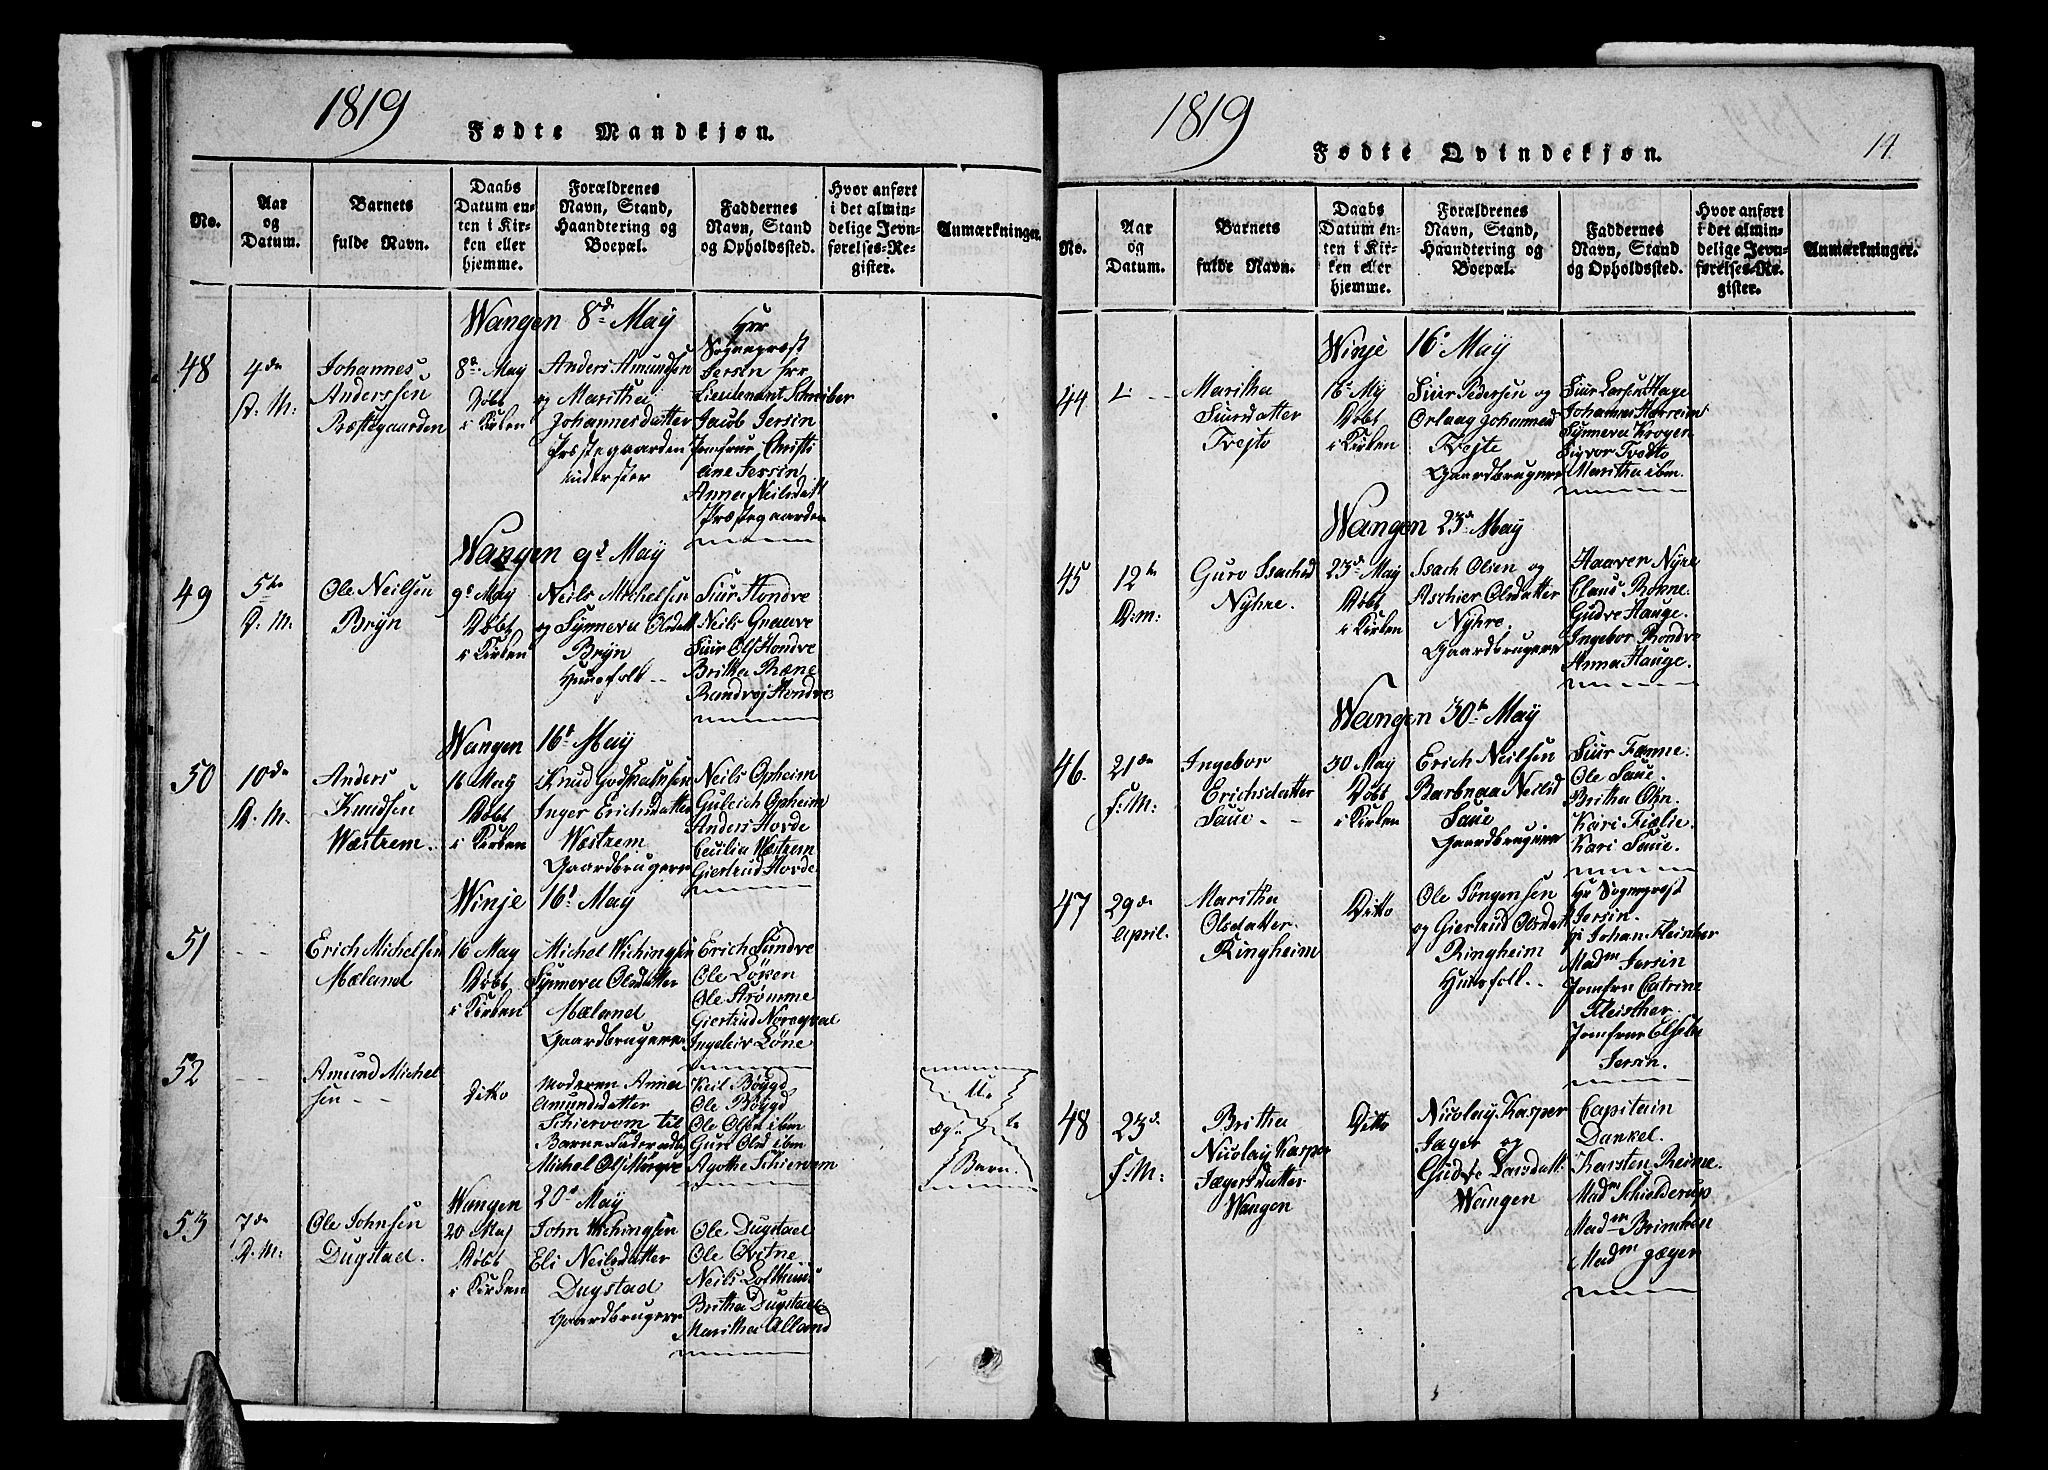 1819
Fødte Mandkjøn.
No.
Aar
og
Datum.
Barnets
fulde Navn.
Daabs
Datum en-
ten i Kir-
ken eller
hjemme.
Forældrenes
Navn, Stand,
Haandtering og
Boepæl.
Faddernes
Navn, Stand
og Opholdssted.
Hvor anført
i det almin-
delige Jevn-
førelses-Re-
gister.
Anmærkninger.
Wangen 8d May
48
4de
D: M:
Johannes
Anderssen
Præstegaarden
8de May
Døbt
i Kirken
Anders Amundsen
og Maritha
Johannesdatter
Præstegaarden
inderster
Hrr
Sogneprest
Jersin Hrr
Lieutenant Schreiber
Jacob Jersin
Jomfrue Christi
ane Jersin
Anna Neilsdatt
Præstegaarden
Wangen 9d May
49
5te
D: M:
Ole Neilsen
Bryn
9d May
Døbt
i Kirken
Neils Michelsen
og Synneva Olsdatt
Bryn
Huusfolk
Siur Hondve
Neils Graauve
Siur Ols Hondve
Britha Ræne
Randvej Hondve
Wangen 16d May
50
10de
D: M.
Anders
Knudsen
Wæstrem.
16 May
Døbt
i Kirken
Knud Godskalksen
Inger Erichsdatter
Wæstrem
Gaardbrugere
Neils Opheim
Guleich Opheim
Anders Hovde
Cecilia Wæstrem
Giertrud Hovde
Winje 16d May
51
Erich Michelsen
Mæland
16 May
Døbt
i Kirken
Michel Wichingsen
Synneva Olsdatter
Mæland
Gaardbrugere
Erich Sundve
Ole Løken
Ole Strømme
Giertrud Norsqval
Ingeleiv Løne
52
Amund Michel
sen
Ditto
Moderen Anna
Amundsdatter
Schiervem til
Barne Fader udl
Michel Ols Mørqve
Keil Bøygd
Ole Bøygd
Ole Olsen ibm
Guri Olsd ibm
Agothe Schiervem
U-
ægte
Barn.
Wangen 20d May
53
7de
D: M:
Ole Johnsen
Dugstad.
20 Maj
Døbt
i Kirken
John Wichingsen
Eli Neilsdatter
Dugstad
Gaardbrugere
Ole Dugstad
Ole Qvitne
Neils Lofthuus
Britha Dugstad
Maritha Alland
1819
14.
Fødte Qvindekjøn.
No.
Aar
og
Datum.
Barnets
fulde Navn.
Daabs
Datum en-
ten i Kir-
ken eller
hjemme.
Forældrenes
Navn, Stand,
Haandtering og
Boepæl.
Faddernes
Navn, Stand
og Opholdssted.
Hvor anført
i det almin-
delige Jevn-
førelses-Re-
gister.
Anmærkninger.
Winje 16d May
44
Maritha
Siursdatter
Tvejto
16d My
Døbt
i Kirken
Siur Pedersen og
Orlaag Johannesd
Tvejte
Gaardbrugere
Siur Larsen Hage
Johannes
Synneva Krogen
Sigvor Tvedto
Maritha ibm.
Wangen 23d May
45
12te
D: m:
Guro Isachsd
Nyhre.
23d May
Døbt
i Kirken
Isach Olsen og
Aschier Olsdatter
Nyhre.
Gaardbrugere
Haaver Nyre
Claus Rokne
Gudve Hauge.
Ingebor Rondve
Anna Hauge.
Wangen 30te May
46.
21de
f: M:
Ingebor
Erichsdatter
Saue
30 May
Døbt
i Kirken
Erich Neilsen
Barbraa Neilsd
Saue
Gaardbrugere
Siur Fænne.
Ole Saue.
Britha Øhn.
Kari Fiælie.
Kari Saue.
47
29de
April.
Maritha
Olsdatter.
Ringheim
Ditto
Ole Jørgensen
og Giertrud Olsdatt
Ringheim
Huusfolk.
Hr Sogneprest
Jersin.
Hr Johan Fleischer
Madm Jersin
Jomfru Catrine
Fleischer.
Jomfrue Elsebe
Jersin.
48
23de
f: M:
Britha
Nicolay Kasper
Jægersdatter
Wangen
Ditto
Nicolay Kasper
Jager og
Gudve Larsdatt
Wangen
Capitain
Dankel.
Karsten Reime.
Madm Schielderup
Madm Brimken
Madm Jæger